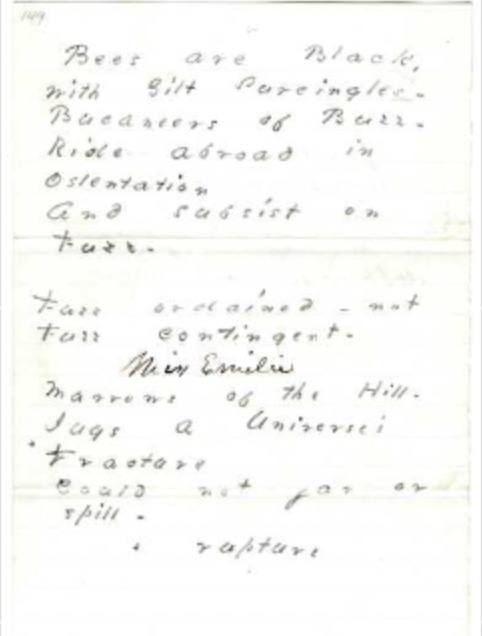 149
Bees are Black,
with Gilt Surcingles -
Bucaneers of Buzz.
Ride abroad in
Ostentation
And subsist on
Fuzz.
Fuzz ordained - not
Fuzz contingent.
Miss Emilie
Marrows of the Hill.
Jugs a Universe's
• Fracture
Could not jar or
spill.
• rupture